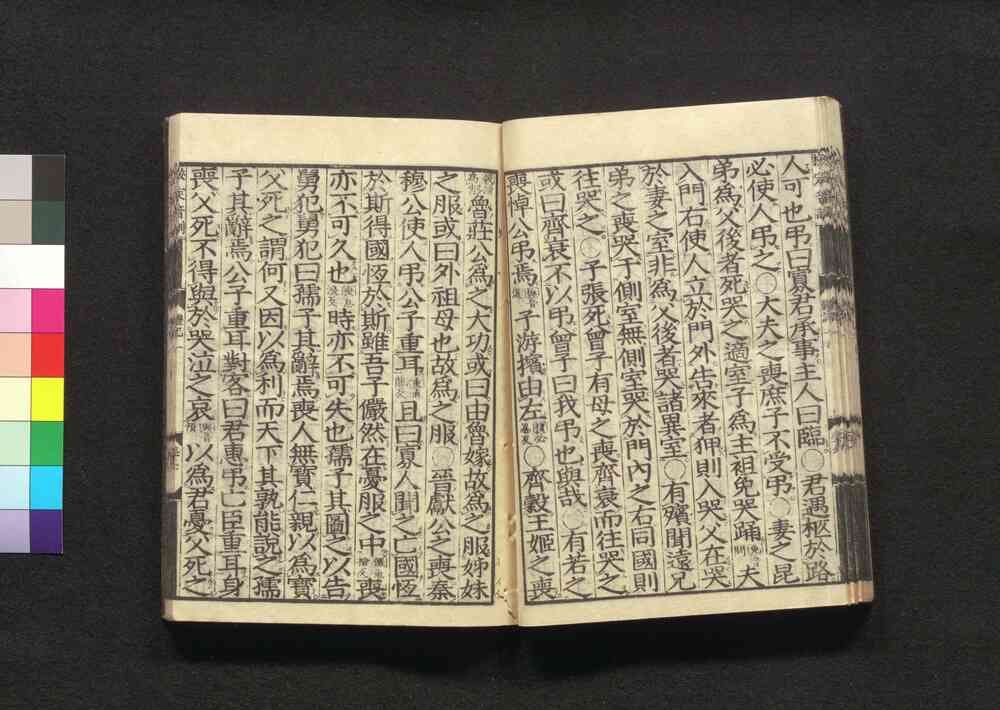 人可也弔曰寡君承事主人曰臨○君遇柩於路
必使人弔之○大夫之喪庶子不受弔○妻之昆
弟爲父後者死哭之適室子爲主袒免哭踊夫
入門右使人立於門外告來者狎則入哭父在哭
於妻之室非爲父後者哭諸異室○有殯聞遠兄
弟之喪哭于側室無側室哭於門內之右同國則
往哭之○子張死曾子有母之喪齊衰而往哭之
或曰齊衰不以弔曾子曰我弔也與哉○有若之
喪悼公弔焉子游擯由左○齊穀王姬之喪
魯莊公爲之大功或曰由魯嫁故爲之服姊妹
之服或曰外祖母也故爲之服○晉獻公之喪秦
穆公使人弔公子重耳且曰寡人聞之亡國恆
於斯得國恆於斯雖吾子儼然在憂服之中喪
亦不可久也時亦不可失也孺子其圖之以告
舅犯舅犯曰孺子其辭焉喪人無寶仁親以爲寶
父死之謂何又因以爲利而天下其孰能說之孺
子其辭焉公子重耳對客曰君惠弔亡臣重耳身
喪父死不得與於哭泣之哀以爲君憂父死之